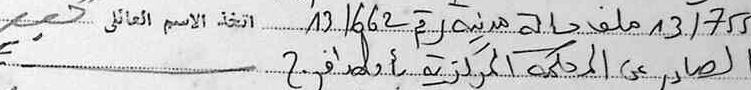 13/755 ملف حالة مدنية رقم 13/662 اتخذ الاسم العائلي
الصادر عن المحكمة المركزية بأولاد